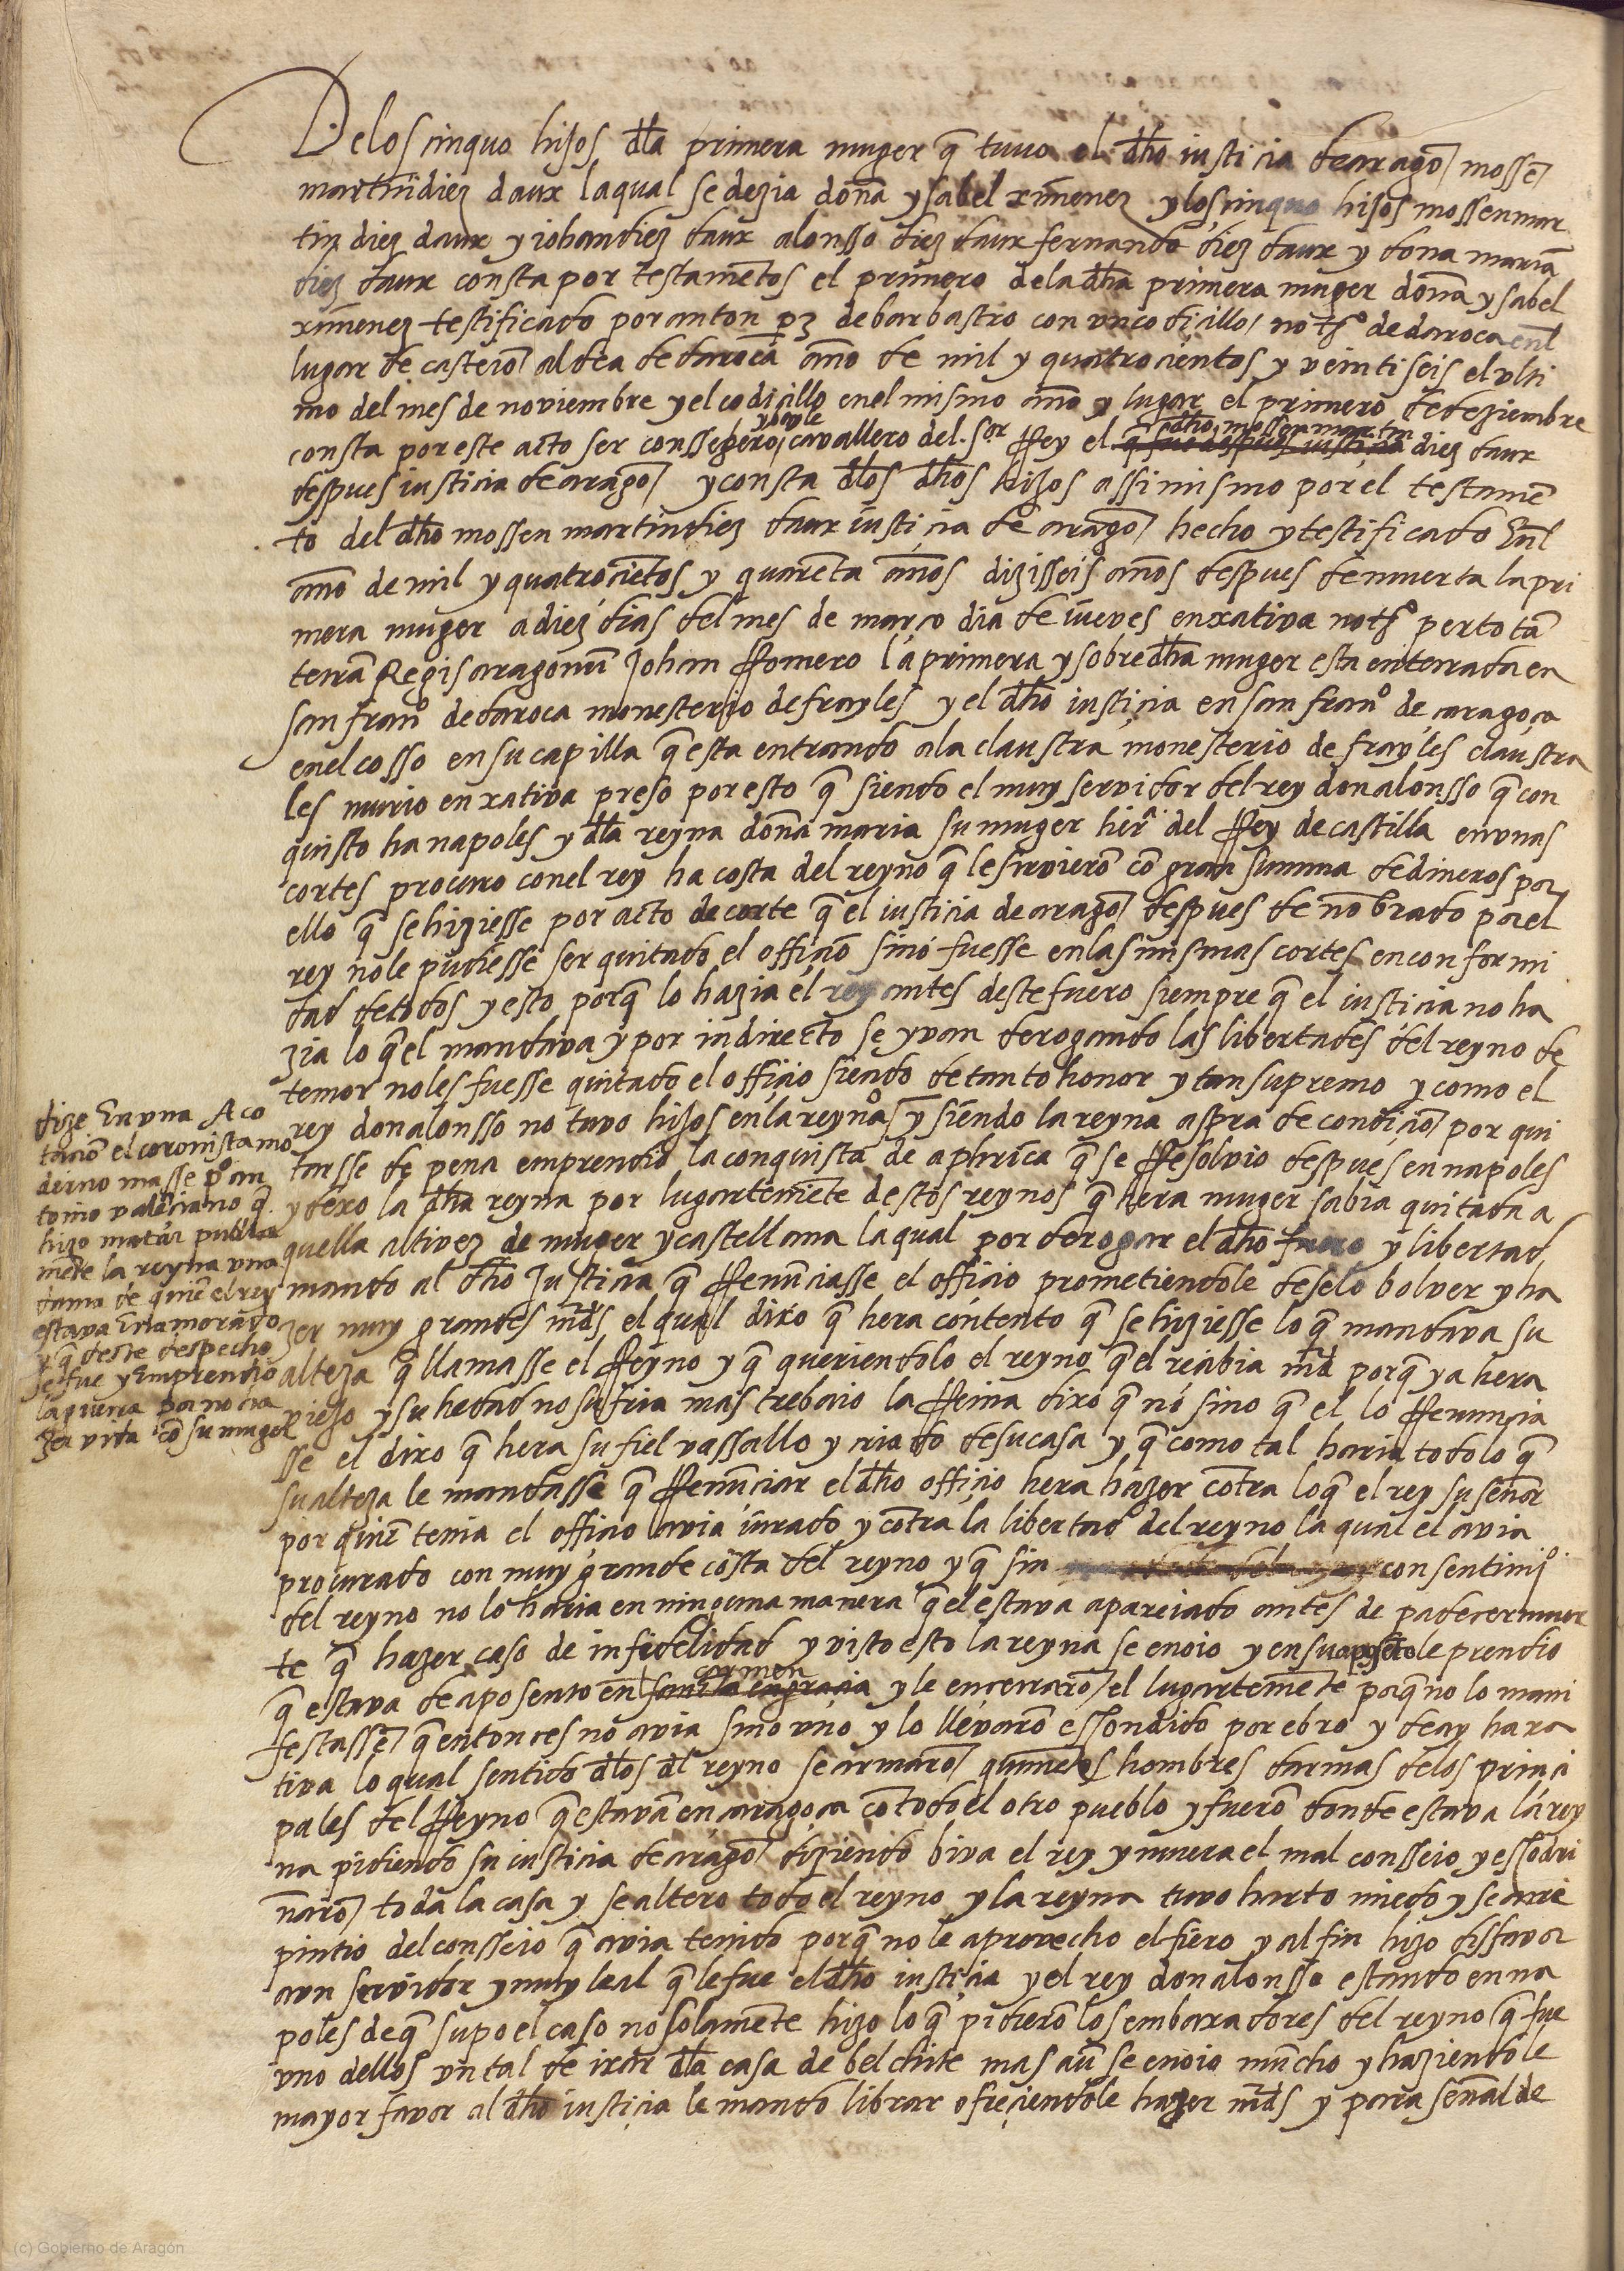 Delos cinquo hijos dla primera muger q̄ tuuo el dho iusticia dearagō mossē
martin diez daux laqual se dezia doña ysabel ximenez y los cinquo hijos mossen mar
tin diez daux y iohan diez daux alonsso diez daux fernando diez daux y dona maria
diez daux consta por testamētos el primero dela dha primera muger doña ysabel
ximenez testificado por anton pz debarbastro con vn codicillo not.º de daroca enl
lugar de casteiō aldea de daroca año de mil y quatrocientos y veinti seis el vlti
mo del mes de noviembre y el codicillo enel mismo año y lugar el primero de deziembre
consta por este acto ser conssegero y oyle cavallero del s.or Rey el dho mossen martin diez daux
despues iusticia dearagō y consta dlos dhos hijos assimismo por el testamē
to del dho mossen martin diez daux iusticia de aragō hecho y testificado Enl
año de mil y quatrociētos y quarēta años diziseis años despues de muerta la pri
mera muger a diez dias del mes de março dia de iueves en xativa not.º per totā
terrā Regis aragonū Johan Romero la primera y sobredha muger esta enterrada en
san fran.º de daroca monesterio de frayles y el dho iusticia en san fran.º de caragoça
enel cosso en su capilla q̄ esta entrando ala claustra monesterio de frayles claustra
les murio en xativa preso por esto q̄ siendo el muy servidor del rey don alonsso q̄ con
quisto ha napoles y dla reyna doña maria su muger her.ª del Rey de castilla en vnas
cortes procuro conel rey ha costa del reyno q̄ le sirvierō cō gran summa de dineros por
ello q̄ se hiziesse por acto de corte q̄ el iusticia de aragō despues de nōbrado por el
rey nole pudiesse ser quitado el officio sino fuesse en las mismas cortes en conformi
dad de todos y esto porq̄ lo hazia el rey antes deste fuero siempre q̄ el iusticia no ha
zia lo q̄ el mandava y por indirecto se yvan derogando las libertades del reyno de
temor no les fuesse quitado el officio siendo de tanto honor y tan supremo y como el
rey don alonsso no tuvo hijos en la reyna y siendo la reyna aspra de condiciō por qui
tarsse de pena emprendio la conquista de aphrica q̄ se Resolvio despues en napoles
y dexo la dha reyna por lugarteniēte destos reynos q̄ hera muger sabia quitada a
quella altivez de muger y castellana la qual por derogar el dho fuero y libertad
mando al dho Justicia q̄ Renūciasse el officio prometiendole deselo bolver y ha
zer muy grandes mds el qual dixo q̄ hera cōtento q̄ se hiziesse lo q̄ mandava su
alteza q̄ llamasse el Reyno y q̄ queriendolo el reyno q̄ el recibia md porq̄ ya hera
viejo y su hedad no sufria mas trebaio la Reina dixo q̄ no sino q̄ el lo Renuncia
sse el dixo q̄ hera su fiel vassallo y criado de su casa y q̄ como tal haria todo lo q̄
su alteza le mandasse q̄ Renūciar el dho officio hera hazer cōtra lo q̄ el rey su señor
por quiē tenia el officio avia iurado y cōtra la libertad del reyno la qual el avia
procurado con muy grande costa del reyno y q̄ sin consentimi.º
del reyno no lo haria en ninguna manera q̄ el estava apareiado antes de padecer muer
te q̄ hazer caso de infidelidad y visto esto la reyna se enoio y en su aposēto le prendio
q̄ estava de aposento en carmen y le encerrarō el lugarteniēte porq̄ no lo mani
festassē q̄ entonces no avia sino vno y lo llevarō escondido por ebro y de ay ha xa
tiva lo qual sentido dlos dl reyno se armarō quiniētos hombres darmas delos princi
pales del Reyno q̄ estavā en caragoça cō todo el otro pueblo y fuerō donde estava la rey
na pidiendo su iusticia de aragō diziendo biva el rey y muera el mal consseio y escodri
ñarō toda la casa y se altero todo el reyno y la reyna tuvo harto miedo y se arre
pintio del consseio q̄ avia tenido porq̄ no le aprovecho el fiero y al fin hizo disfavor
a vn servidor y muy leal q̄ le fue el dho iusticia y el rey don alonsso estando en na
poles de q̄ supo el caso no solamēte hizo lo q̄ pidierō los embaxadores del reyno q̄ fue
vno dellos vn tal de ixar dla casa de belchite mas aū se enoio mūcho y haziendole
mayor favor al dho iusticia le mando librar ofreciendole hazer mds y para señal de
dize En vna Aco
taciō el coronista mo
derno masse p.º an
tonio valēciano q̄
hizo matar publica
mēte la reyna vna
dama de quiē el rey
estava Enamorado
y q̄ deste despecho
se fue y Emprendio
la guerra por no ha
zer vida cō su muger